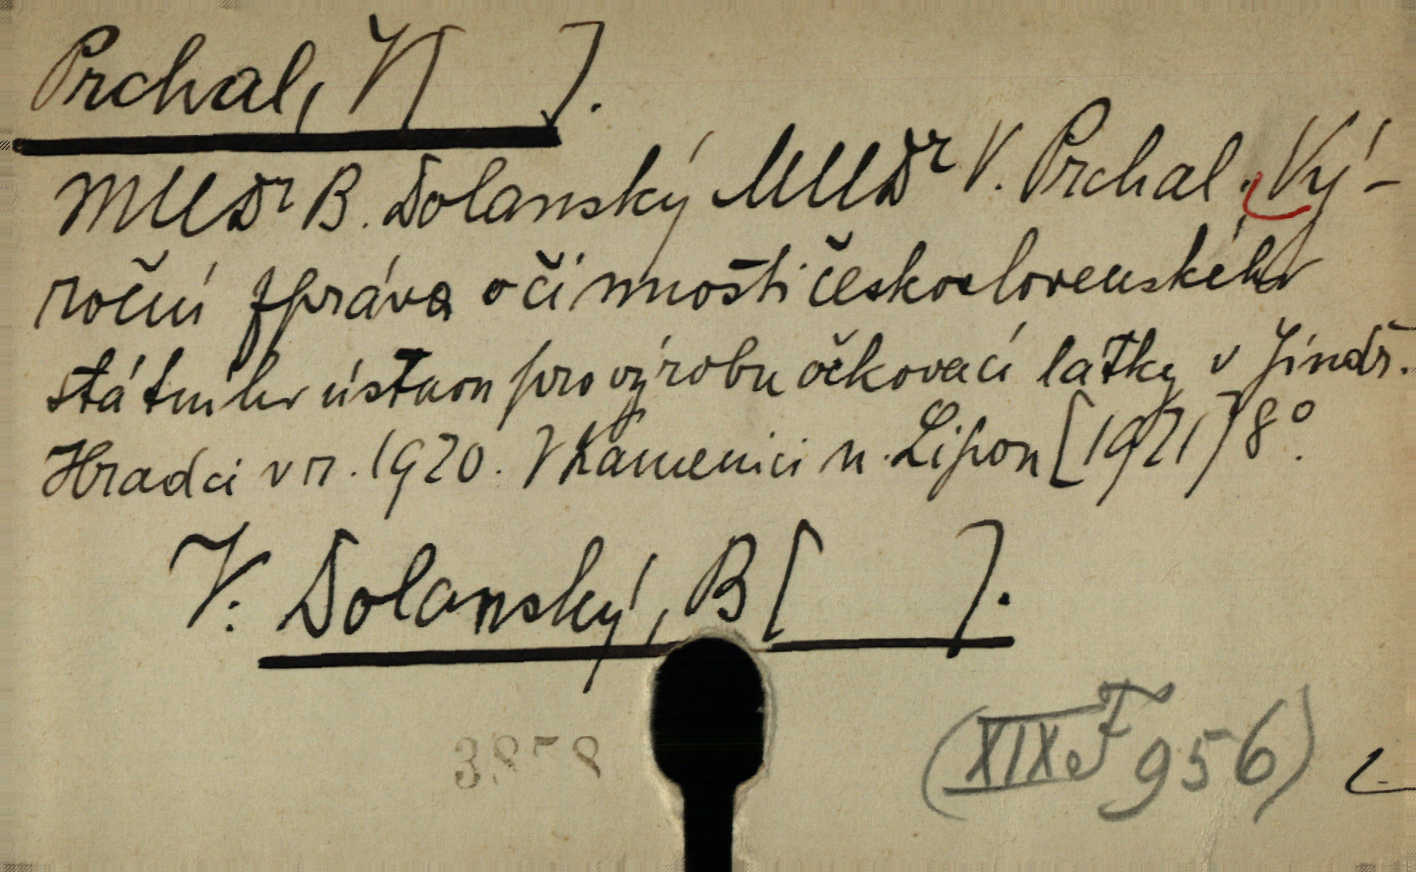 Prchal, V[ ].
MUDr B. Dolanský MUDr V. Prchal. Vý-
roční zpráva o činnosti československého
státního ústavu pro výrobu očkovací látky v Jindř.
Hradci v r. 1920. V Kamenici n. Lipou [1921] 8°.
V: Dolanský, B[ ].
(XIX F 956)